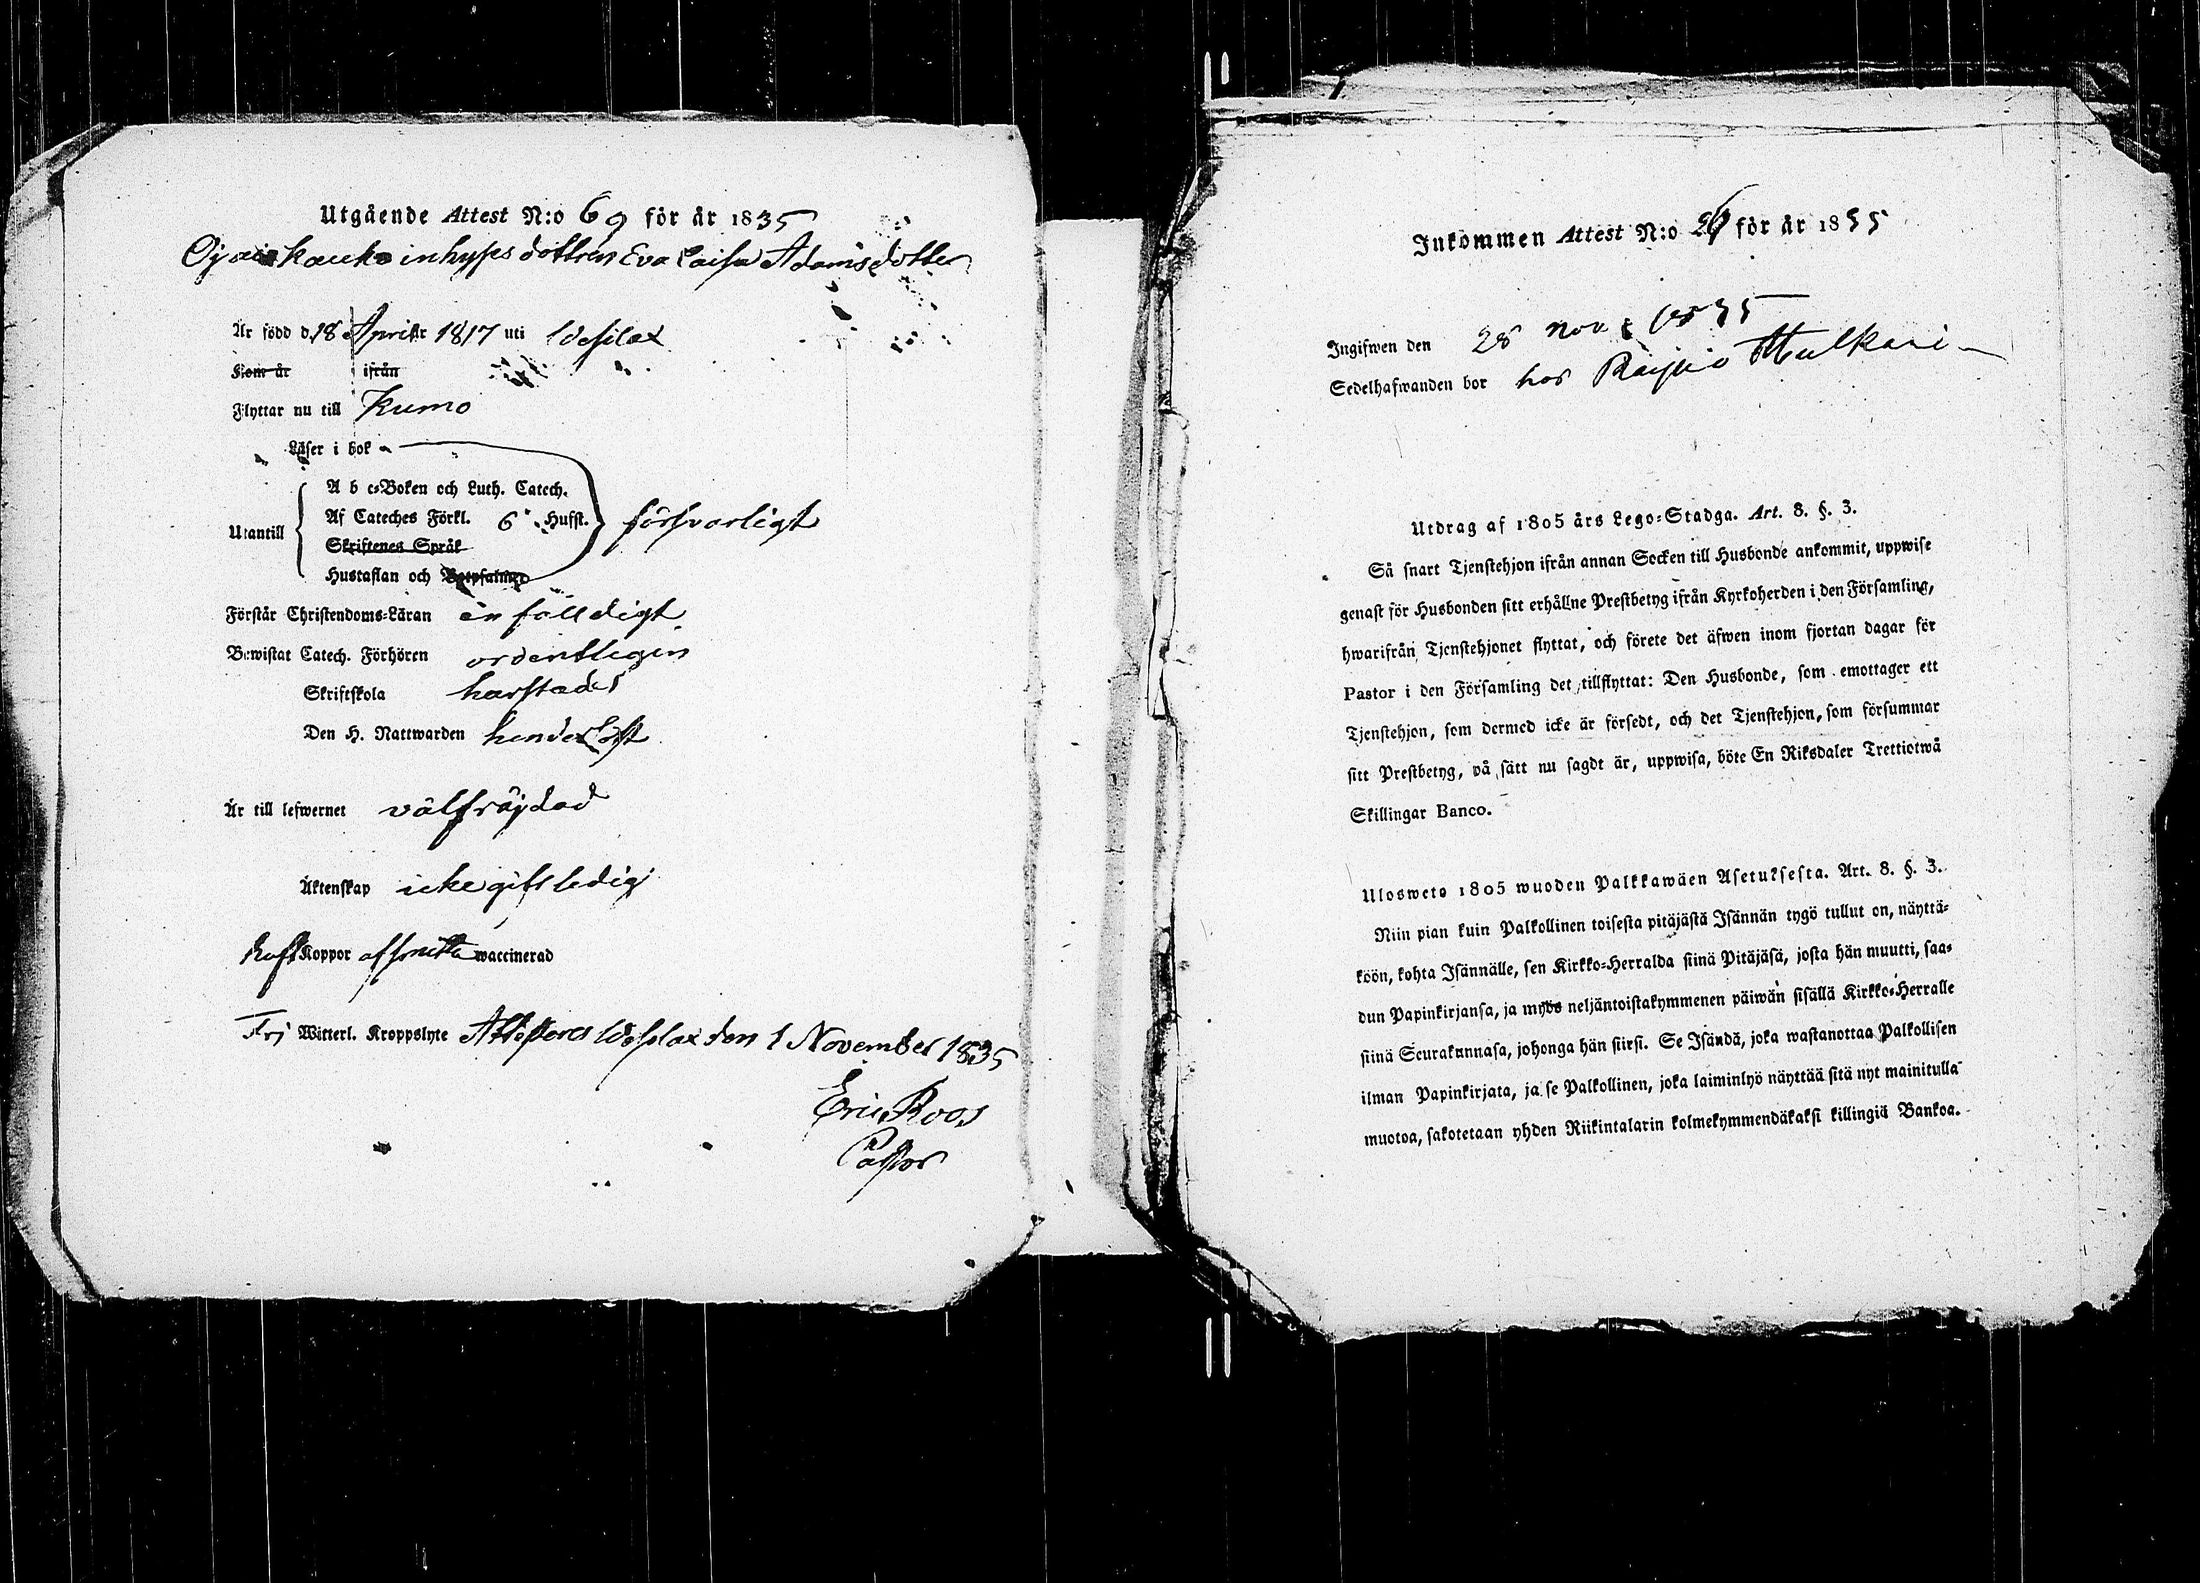 Utgående Attest N:o 69 för år 1835
inhyses dottren Eva Caisa Adamsdotter
Är född d. 18 April år 1817 uti Wesilax
Kom år ifrån
Flyttar nu till Kumo
Läser i bok
A b c-Boken och Luth. Catech.
Utantill Af Cateches Förkl. 6 Hufst. försvarligt
Skriftenes Språk
Hustaflan och Botpsalmer
Förstår Christendoms-Läran enfalldigt
Bewistat Catech. Förhören ordentligen
Skriftskola
Den H. Nattwarden
Är till lefwernet välfräjdad
Äktenskap icke gift ledig
Haft Koppor waccinerad
Fri Witterl. Kroppslyte Attesteras Wesilax den 1 November 1835
Eric Roos
Pastor
Inkommen Attest N:o 26 för år 1835
Ingifwen den 28 Nov 1835
Sedelhafwanden bor hos
Utdrag af 1805 års Lego-Stadga. Art. 8. §. 3.
Så snart Tjenstehjon ifrån annan Socken till Husbonde ankommit, uppwise
genast för Husbonden sitt erhållne Prestbetyg ifrån Kyrkoherden i den Församling,
hwarifrån Tjenstehjonet flyttat, och förete det äfwen inom fjortan dagar för
Pastor i den Församling det tillflyttat: Den Husbonde, som emottager ett
Tjenstehjon, som dermed icke är försedt, och det Tjenstehjon, som försummar
sitt Prestbetyg, på sätt nu sagdt är, uppwisa, böte En Riksdaler Trettiotwå
Skillingar Banco.
Ulosweto 1805 wuoden Palkkawäen Asetuksesta. Art. 8. §. 3.
Niin pian kuin Palkollinen toisesta pitäjästä Isännän tygö tullut on, näyttä-
köön, kohta Isännälle, sen Kirkko-Herralda siinä Pitäjäsä, josta hän muutti, saa-
dun Papinkirjansa, ja myös neljäntoistakymmenen päiwän sisällä Kirkko-Herralle
siinä Seurakunnasa, johonga hän siirsi. Se Isändä, joka wastanottaa Palkollisen
ilman Papinkirjata, ja se Palkollinen, joka laiminlyö näyttää sitä nyt mainitulla
muotoa, sakotetaan yhden Riikintalarin kolmekymmendäkaksi killingiä Bankoa.